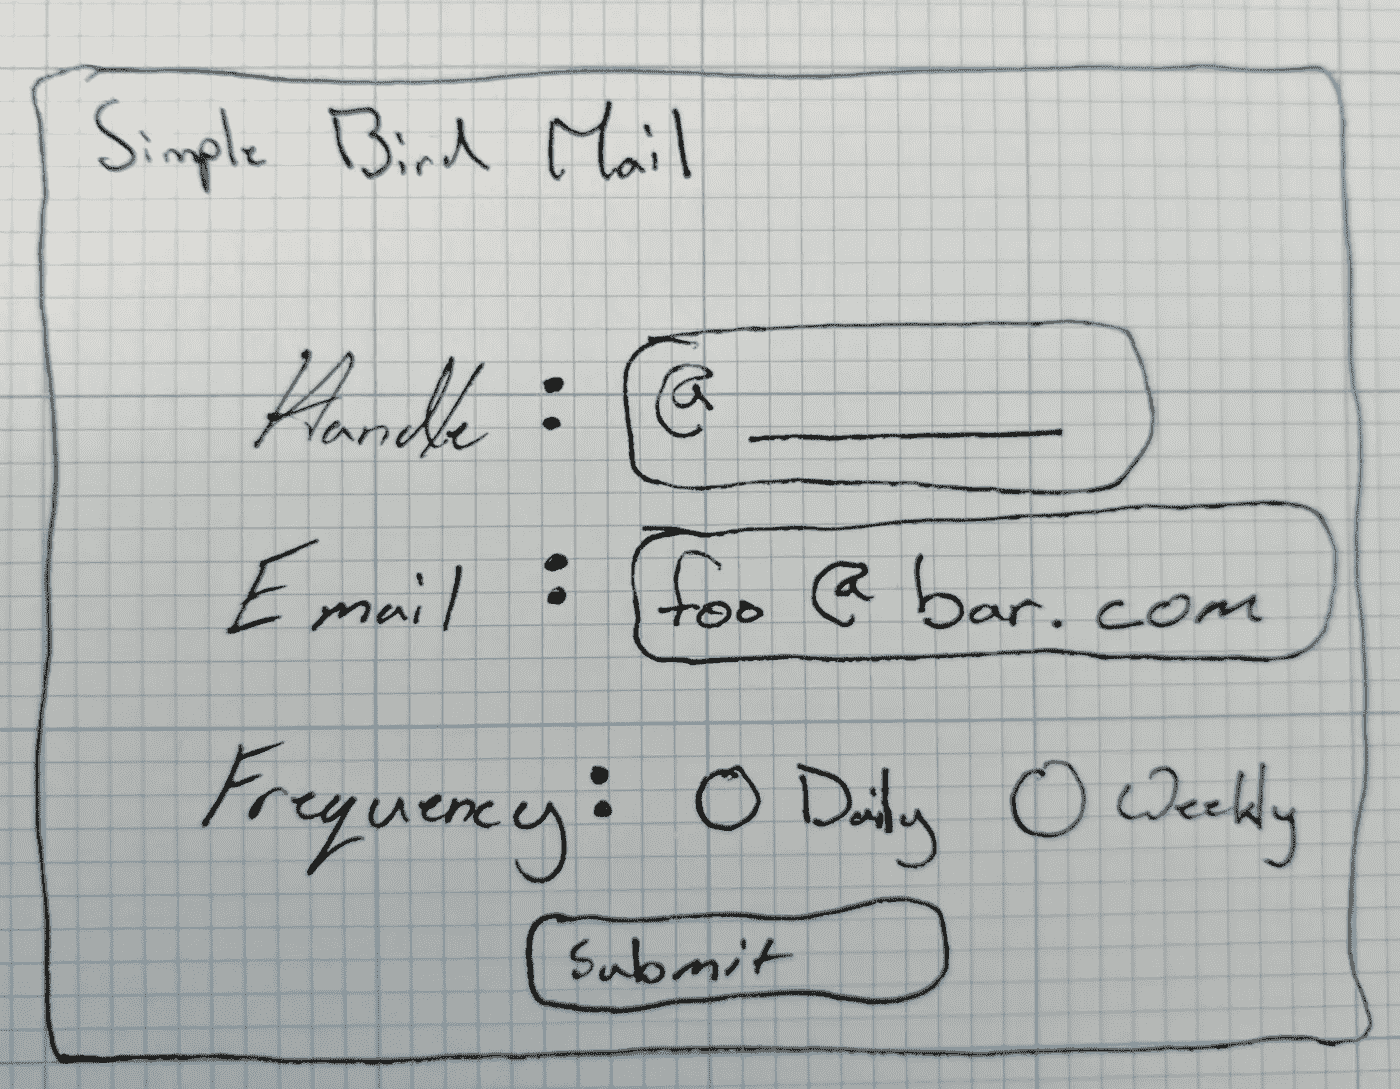 Simple Bird Mail
Handle : @ ________
Email : foo @ bar.com
Frequency : Daily Weekly
Submit